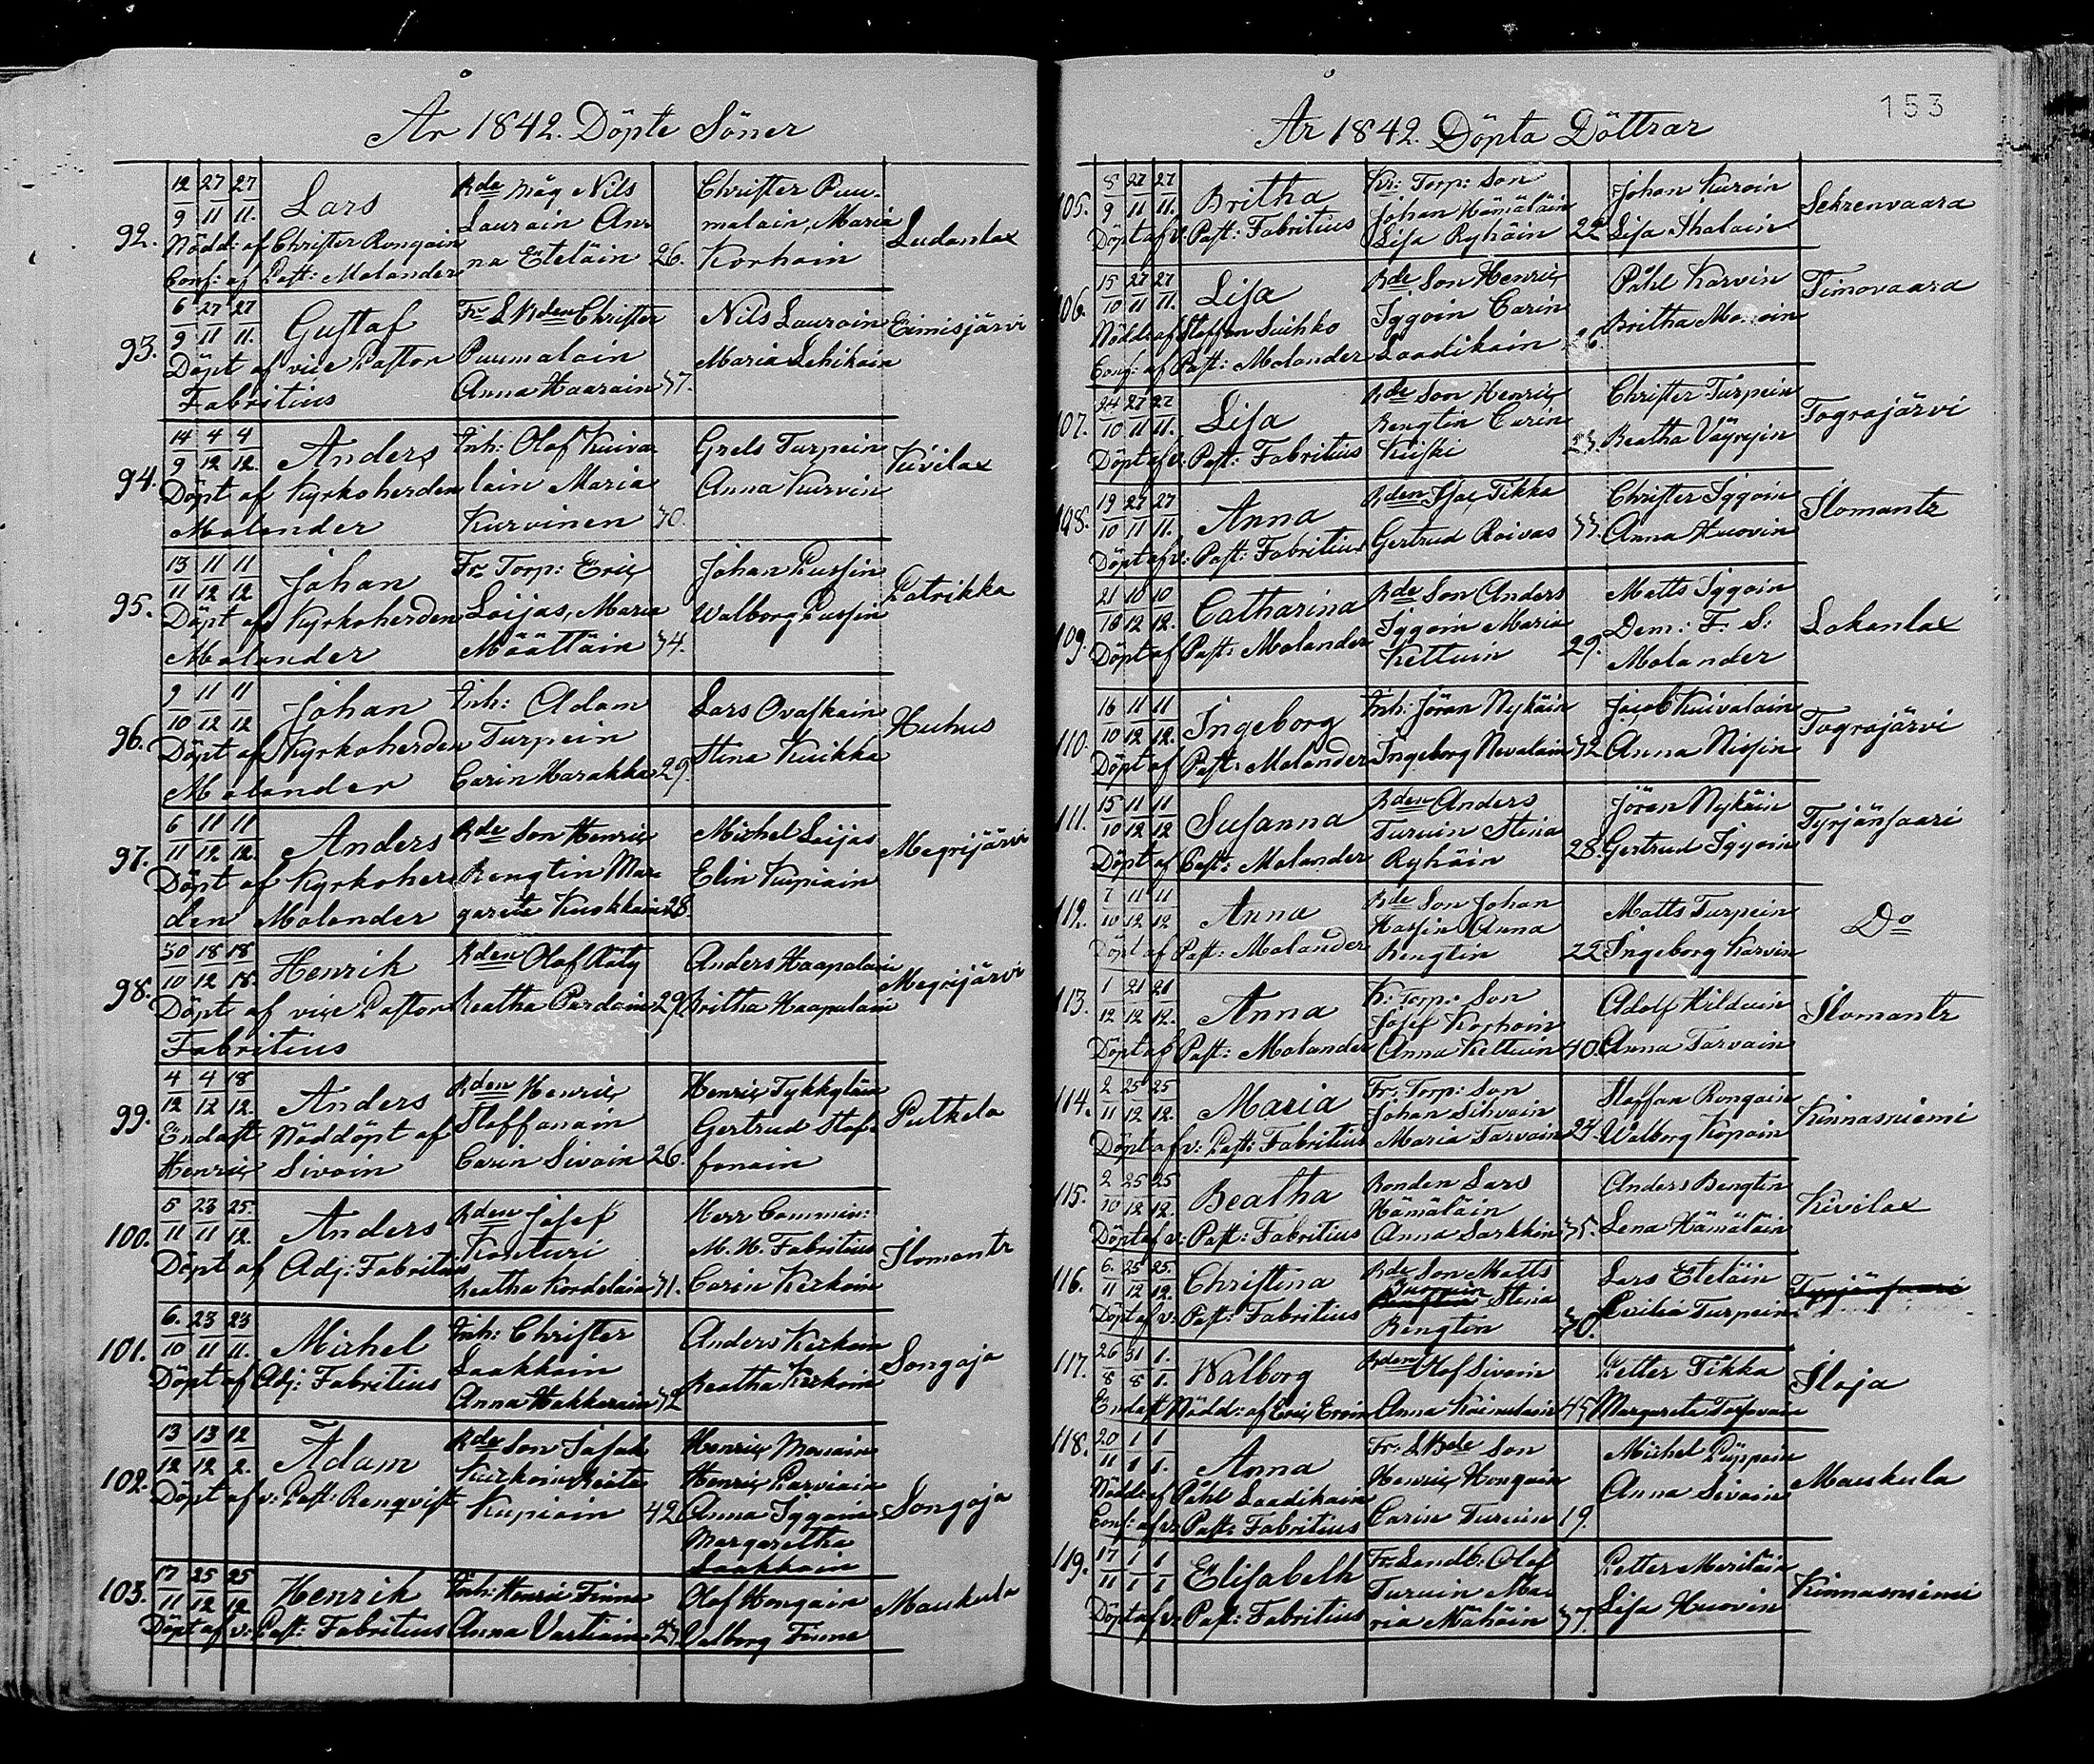 År 1842. Döpte Söner
92.
12 27 27
9 11 11.
Lars
Nödd: af Christer Rongain
Conf: af Past: Molander
Rde måg Nils
Laurain An-
na Eteläin 26.
Christer Puu-
malain, Maria
Korhoin
Ludanlax
93.
6 27 27
9 11 11.
Gustaf
Döpt af vice Pastor
Fabritius
Fr L Rden Christer
Puumalain
Anna Haarain 37.
Nils Laurain
Maria Lehikoin
Eimisjärvi
94.
14 4 4
9 12 12.
Anders
Döpt af Kyrkoherden
Molander
Inh: Olof Kuiva
lain Maria
Kurvinen 30.
Grels Turpein
Anna Kurvin
Kivilax
95.
13 11 11
11 12 12
Johan
Döpt af Kyrkoherden
Molander
Fr. Torp: Eric
Loijas, Maria
Määttäin 34.
Johan Pussin
Walborg Pussin
Patrikka
96.
9 11 11
10 12 12
Johan
Döpt af Kyrkoherden
Molander
Inh: Adam
Turpein
Carin Harakka 29.
Lars Ovaskain
Stina Kuikka
Huhus
97.
6 11 11
11 12 12.
Anders
Döpt af Kyrkoher-
den Molander
Rde Son Henric
Bengtin Mar-
gareta Kuokkain 28.
Michel Loijas
Elin Kupiain
Megrijärvi
98.
30 18 18
10 12 18.
Henrik
Döpt af vice Pastor
Fabritius
Rden Olof Räty
Beatha Pardain 29.
Anders Haapalain
Britha Haapalain
Megrijärvi
99.
4 4 18
12 12 12.
Anders
Endast Nöddöpt af
Henric Sivoin
Rden Henric
Staffanain
Carin Sivoin 26.
Henric Tykkyläin
Gertrud Staf-
fanain
Putkela
100.
5 23 25.
11 11 12.
Anders
Döpt af Adj: Fabritius
Rden Josef
Konturi
Beatha Kordelain 31.
Herr Commin:
M. H. Fabritius
Carin Kerkoin
Ilomants
101.
6. 23 23
10 11 11.
Michel
Döpt af Adj: Fabritius
Inh: Christer
Laakkoin
Anna Hakkarain 32
Anders Kerkoin
Beatha Kerkoin
Songaja
102.
13 13 12
12 12 2.
Adam
Döpt af v: Past: Renqvist
Rde Son
Kupiain 42
Henric Monain
Henric Parviain
Anna Iggoin
Margaretha
Laakkoin
Songaja
103.
17 25 25
11 12 12
Henrik
Döpt af v: Past: Fabritius
Inh: Henric Finne
Anna Vartiain
Olof Hongain
Valborg Finne
Maukula
153
År 1842. Döpta Döttrar
105.
8 27 27
9 11 11.
Britha
Döpt af v: Past: Fabritius
Kr: Torp: Son
Johan Hämäläin
Lisa Ryhäin 22
Johan Kuroin
Lisa Ihalain
Sehrenvaara
106.
15 27 27
10 11 11.
Lisa
Nödd: af Staffan Suihko
Conf: af Past: Molander
Rde Son Henric
Iggoin Carin
Laadikain
Påhl Karvin
Britha
Timovaara
107.
24 27 27
10 11 11.
Lisa
Döpt af v: Past: Fabritius
Rde Son Henric
Bengtin Carin
Kiiski
Christer Turpein
Beatha Väyryin
Tograjärvi
108.
19 27 27
10 11 11.
Anna
Döpt af v: Past: Fabritius
Rden Isac Tikka
Gertrud Roivas 33.
Christer Iggoin
Anna Huovin
Ilomants
109.
21 10 10
10 12 12.
Catharina
Döpt af Past: Molander
Rde Son Anders
Iggoin Maria
Kettuin 29.
Matts Iggoin
Dem: F. S:
Molander
Lokanlax
110.
16 11 11
10 12 12.
Ingeborg
Döpt af Past: Molander
Inh: Jöran Nykäin
Ingeborg Nevalain 32
Jacob Kuivalain
Anna Nissin
Tograjärvi
111.
15 11 11
10 12 12
Susanna
Döpt af Past: Molander
Rden Anders
Turuin Stina
Ryhäin 28.
Jöran Nykäin
Gertrud Iggoin
Tyrjänsaari
112.
7 11 11
10 12 12
Anna
Döpt af Past: Molander
Rde Son Johan
Hassin Anna
Bengtin 22
Matts Turpein
Ingeborg Karvin
Do
113.
1 21 21
12 12 12.
Anna
Döpt af Past: Molander
Kr: Torp: Son
Josef Korhoin
Anna Kettuin 40.
Adolf Hilduin
Anna Tarvain
Ilomants
114.
2 25 25
11 12 12.
Maria
Döpt af v: Past: Fabritius
Fr: Torp: Son
Johan Sihvoin
Maria Tarvain 24.
Staffan Rongain
Walborg Kopoin
Kinnasniemi
115.
2 25 25
10 12 12.
Beatha
Döpt af v: Past: Fabritius
Bonden Lars
Hämäläin
Anna Sarkkin 35.
Anders Bengtin
Lena Hämäläin
Kivilax
116.
6. 25 25.
11 12 12.
Christina
Döpt af v: Past: Fabritius
Rde Son Matts
Turuin
Stina
Bengtin 30.
Lars Eteläin
Cecilia Turpein
Tyrjänsaari
117.
26 31 1.
8 8 1.
Walborg
Endast Nödd: af Eric Eroin
Rden Olof Sivoin
Anna Koinulain 45
Petter Tikka
Margareta Torvain
Ilaja
118.
20 1 1
11 1 1.
Anna
Nödd: af Påhl Laadikain
Conf: af v: Past: Fabritius
Fr: L Bde Son
Henric Hongain
Carin Turuin 19.
Michel Püppoin
Anna Sivoin
Maukula
119.
17 1 1
11 1 1
Elisabeth
Döpt af v: Past: Fabritius
Fr. Landb: Olof
Turuin Ma-
ria Mähöin 37.
Petter Meriläin
Lisa Huovin
Kinnasniemi